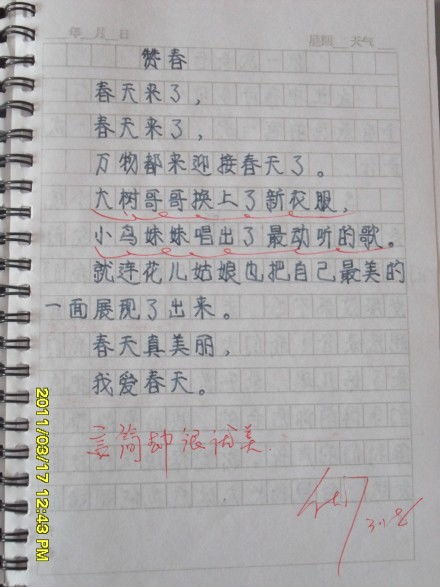 年 月 日 星期 天气
赞春
春天来了，
春天来了，
万物都来迎接春天了。
大树哥哥换上了新衣服，
小鸟妹妹唱出了最动听的歌。
就连花儿姑娘也把自己最美的
一面展现了出来。
春天真美丽，
我爱春天。
2011/03/17 12:43 PM